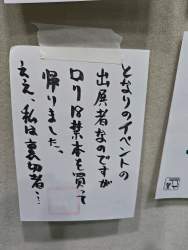 となりのイベントの
出展者なのですが
ロリ18禁本を買って
帰りました。
ええ、私は裏切者…